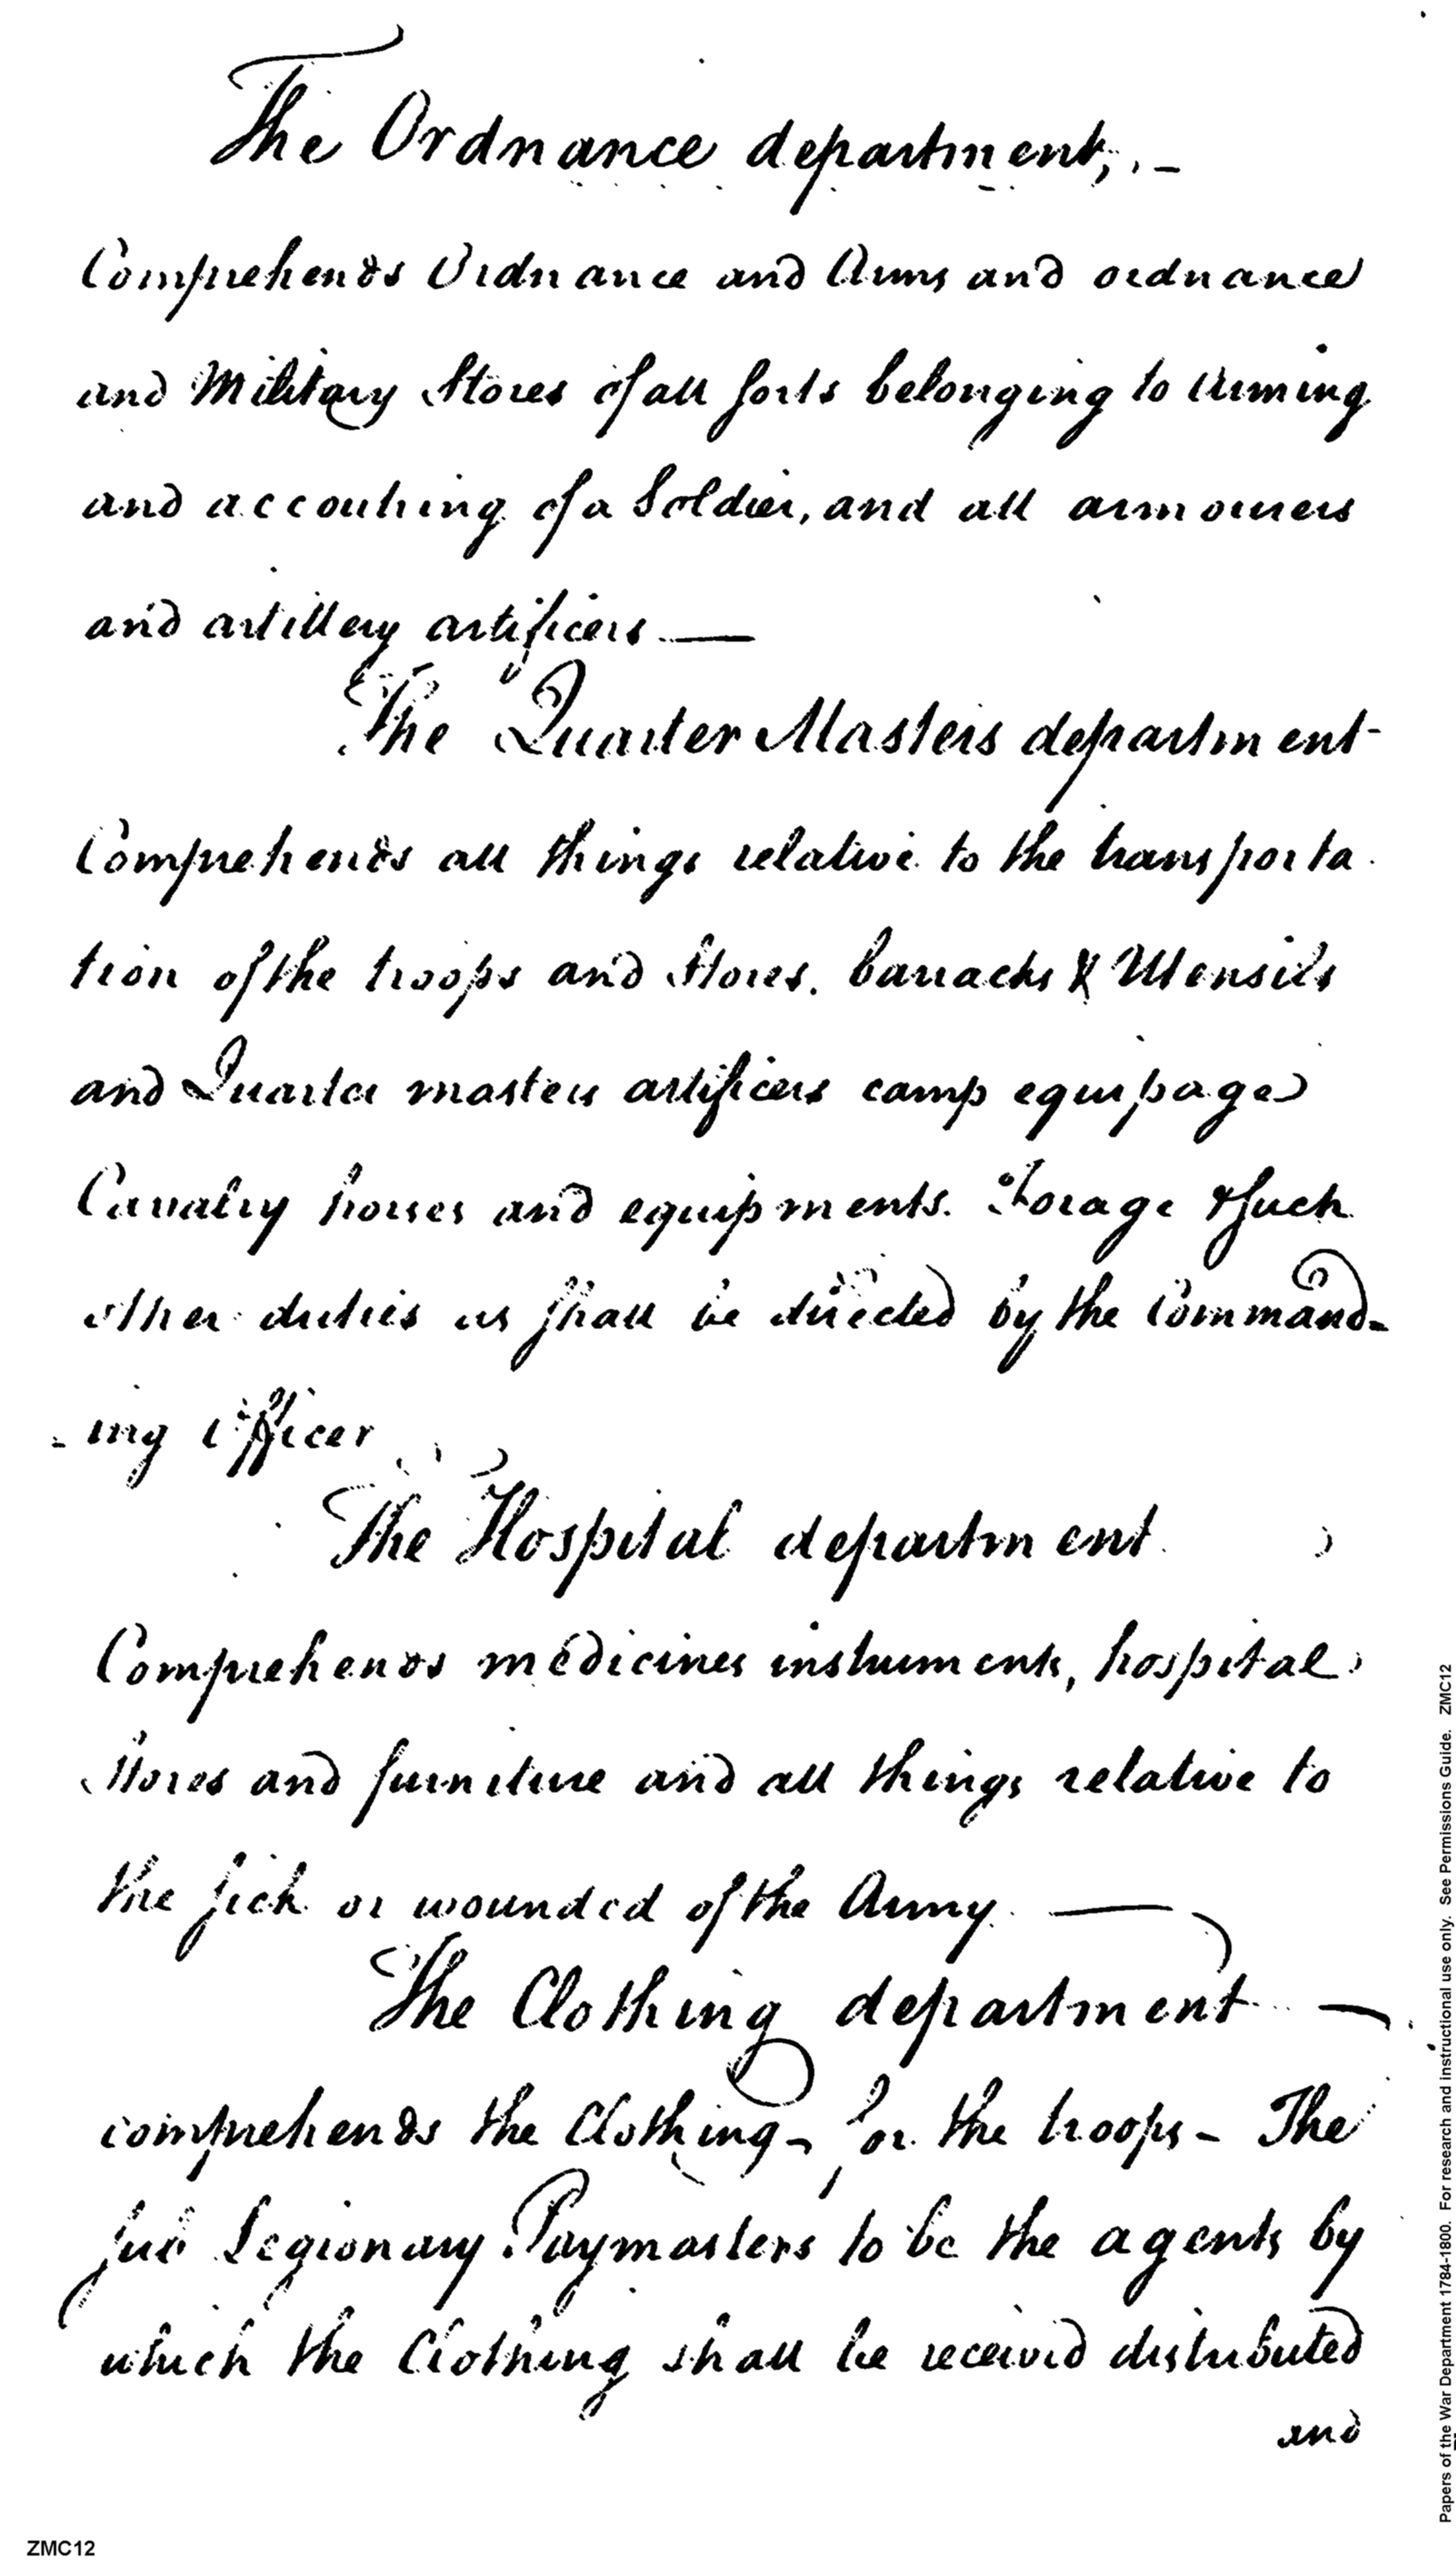 The Ordnance department,. -
Comprehends Ordnance and Arms and ordnance
and Military Stores of all sorts belonging to arming
and accoutring of a Soldier, and all armourers
and artillery artificers —
The Quarter Masters department
Comprehends all things relative to the transporta
tion of the troops and Stores. barracks & Utensils
and Quarter masters artificers camp equipage
Cavalry horses and equipments. Forage & such
other duties as shall be directed by the Command-
- ing officer
The Hospital department
Comprehends medicines instruments, hospital
Stores and furniture and all things relative to
the sick or wounded of the Army. —
The Clothing department —
comprehends the Clothing - for the troops - The
sub Legionary Paymasters to be the agents by
which the Clothing shall be received distributed
and
ZMC12
Papers of the War Department 1784-1800. For research and instructional use only. See Permissions Guide. ZMC12